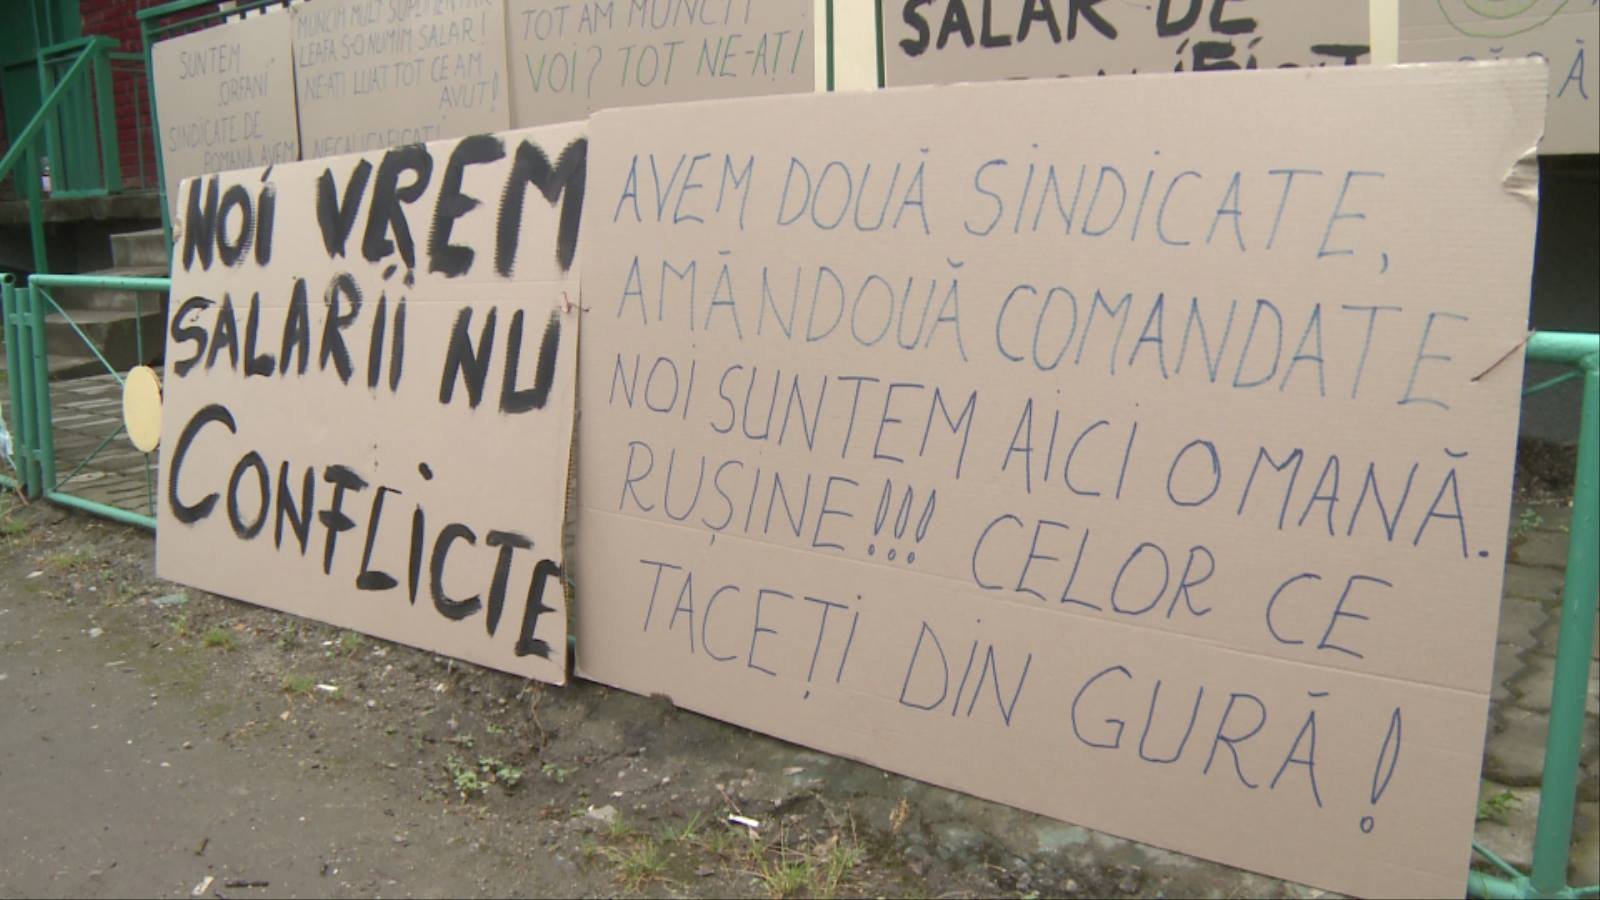 SUNTEM
ORFANI
SINDICATE DE
POMANĂ AVEM
MUNCIM MULT SUPLIMENTAR
LEAFA S-O NUMIM SALAR!
NE-AȚI LUAT TOT CE AM
AVUT!
NECALIFICAT!
TOT AM MUNCIT
VOI? TOT NE-AȚI
SALAR DE
NOI VREM
SALARII NU
CONFLICTE
AVEM DOUĂ SINDICATE,
AMÂNDOUĂ COMANDATE
NOI SUNTEM AICI O MANĂ.
RUȘINE!!! CELOR CE
TACEȚI DIN GURĂ!